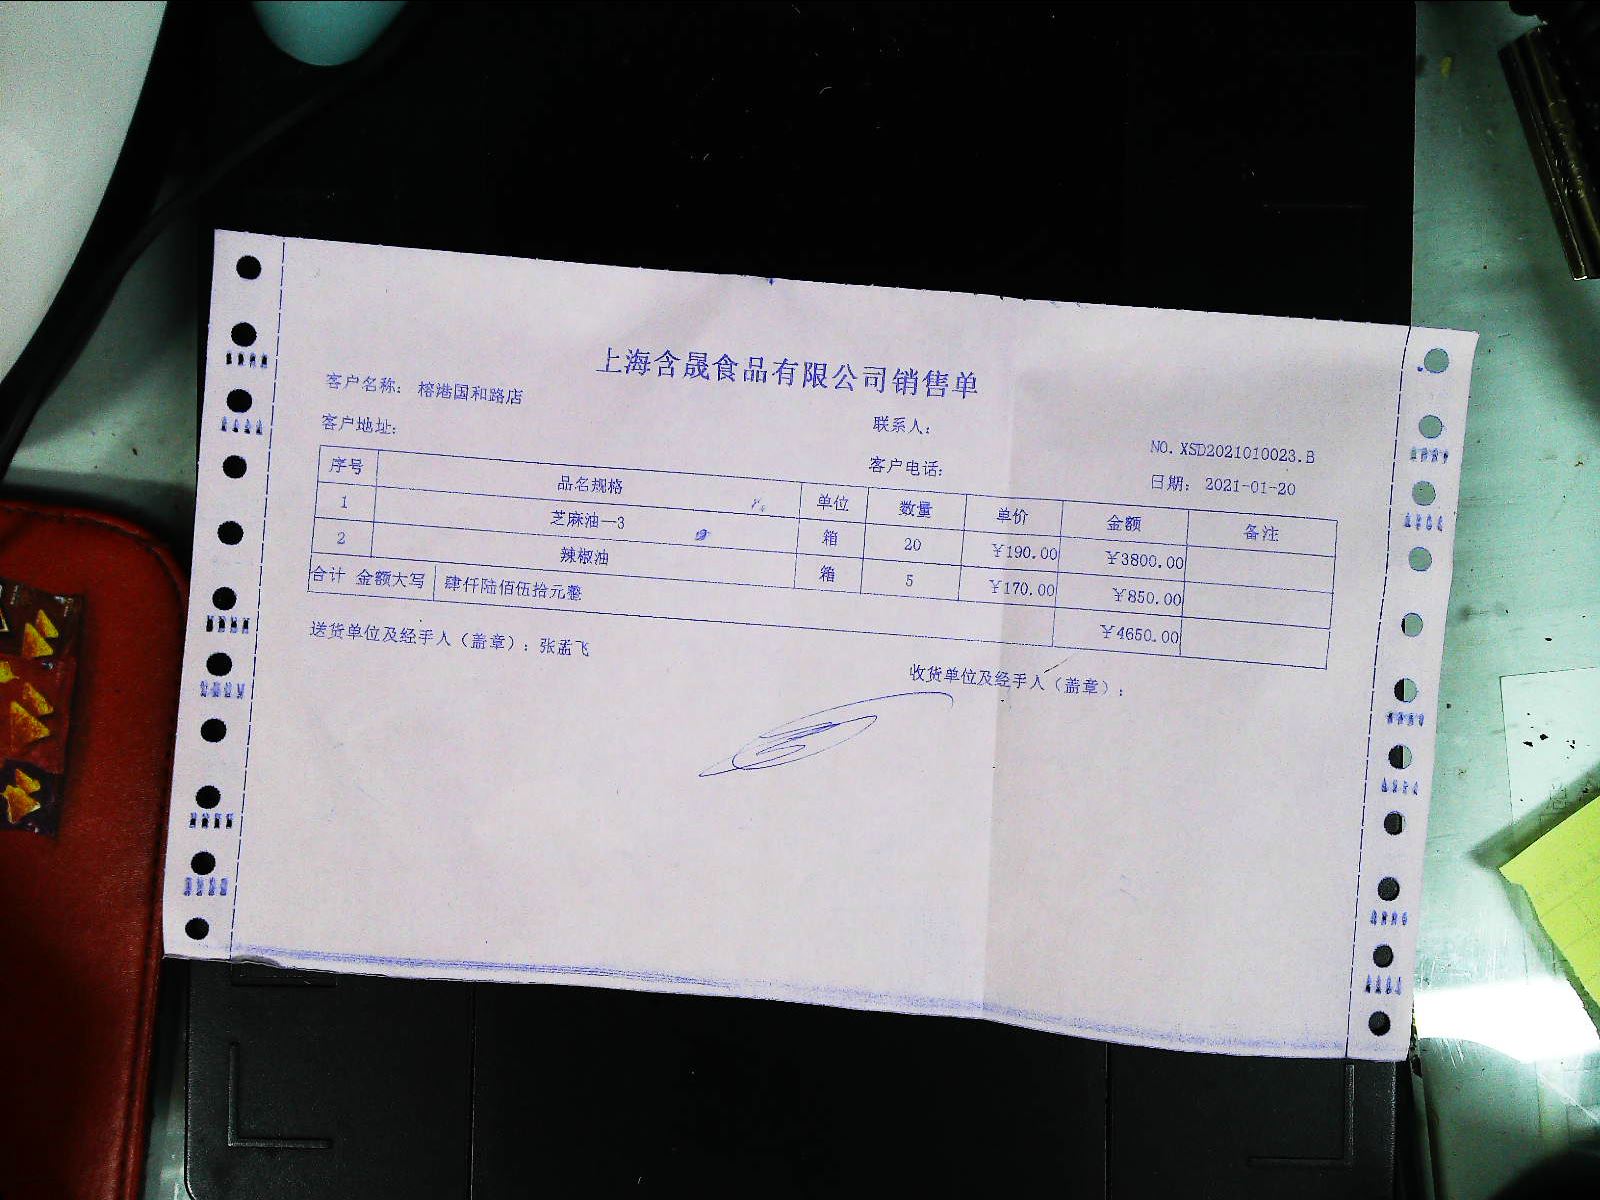 上海含晟食品有限公司销售单
客户名称: 榕港国和路店
客户地址:
联系人:
客户电话:
NO. XSD2021010023.B
日期: 2021-01-20
序号 品名规格 单位 数量 单价 金额 备注
1 芝麻油—3 箱 20 ￥190.00 ￥3800.00
2 辣椒油 箱 5 ￥170.00 ￥850.00
合计 金额大写 肆仟陆佰伍拾元整 ￥4650.00
送货单位及经手人（盖章）: 张孟飞
收货单位及经手人（盖章）: